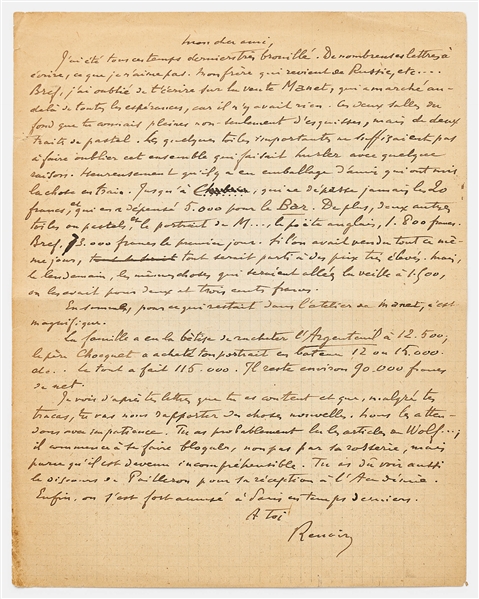 Mon cher ami,
J'ai été tous ces temps derniers très brouillé. De nombreuses lettres à
écrire, ce que je n'aime pas. Mon frère qui revient de Russie, etc....
Bref, j'ai oublié de t'écrire sur la vente Manet, qui a marché au-
delà de toutes les espérances, car il n'y avait rien. Les deux salles du
fond que tu connais pleines non-seulement d'esquisses, mais de deux
traits de pastel. Les quelques toiles importantes ne suffisaient pas
à faire oublier cet ensemble qui faisait hurler avec quelque
raison. Heureusement qu'il y a eu emballage d'amis qui ont mis
la chose en train. Jusqu'à qui ne dépasse jamais les 20
francs, et qui en a dépensé 5.000 pour le Bar. De plus, deux autres
toiles ou pastels, et le portrait de M..., le poète anglais, 1.800 francs.
Bref, 75.000 francs le premier jour. Si l'on avait vendu tout ce mê-
me jour, tout serait parti à des prix très élevés. Mais,
le lendemain, les mêmes choses qui seraient allées la veille à 1.500,
on les avait pour deux et trois cents francs.
En somme, pour ce qui restait dans l'atelier de Manet, c'est
magnifique.
La famille a eu la bêtise de racheter l'Argenteuil à 12.500,
le père Chocquet a acheté ton portrait en bateau 12 ou 15.000.
etc... Le tout a fait 116.000. Il reste environ 90.000 francs
de net.
Je vois d'après ta lettre que tu es content et que, malgré tes
tracas, tu vas nous rapporter des choses nouvelles. Nous les atten-
dons avec impatience. Tu as probablement lu les articles de Wolf...;
il commence à se faire bloguer, non pas par sa rosserie, mais
parce qu'il est devenu incompréhensible. Tu as dû voir aussi
le discours de Pailleron pour sa réception à l'Académie.
Enfin, on s'est fort amusé à Paris ces temps derniers.
A toi
Renoir